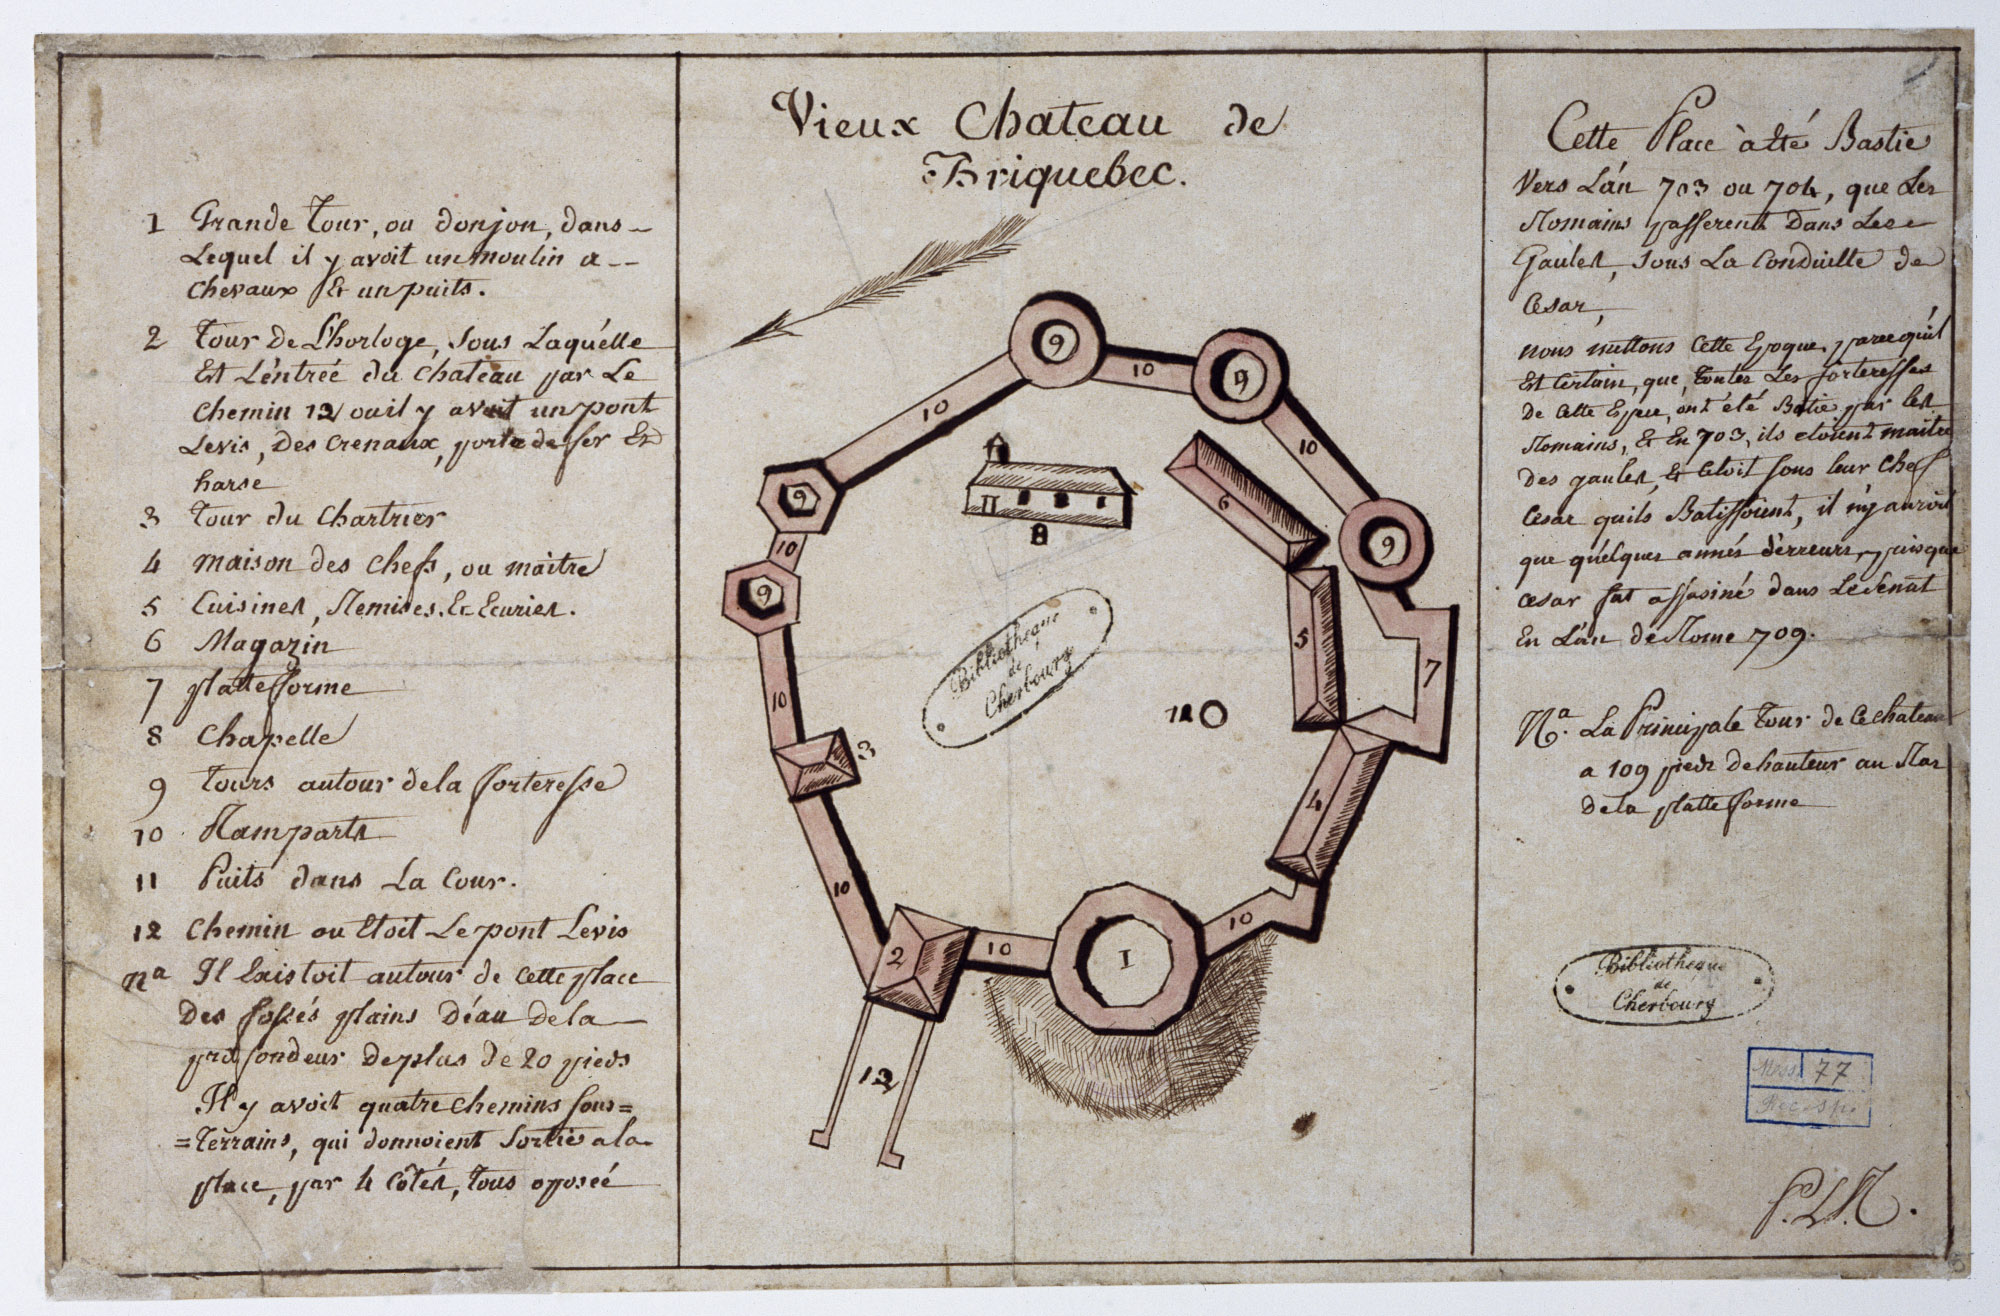 Vieux Chateau de
Briquebec.
1 Grande Tour, ou donjon, dans
Lequel il y avoit un moulin a
chevaux & un puits.
2 Tour de L'horloge, sous Laquélle
Est L'éntrée du chateau par Le
chemin 12 ou il y avoit un pont
Levis, des crenaux, porte de fer Et
harse
3 Tour du Chartrier
4 maison des chefs, ou maitre
5 Cuisines, Remises, & Ecuries.
6 Magazin
7 platte forme
8 Chapelle
9 Tours autour de la forteresse
10 Ramparts
11 Puits dans La Cour.
12 chemin ou Etoit Le pont Levis
Na Il Existoit autour de cette place
Des fossés plains D'éau de la
profondeur de plus de 20 pieds
Il y avoit quatre chemins sous=
=Terrains, qui donnoient sortie a la
place, par 4 côtés, tous oposée
9
9
10
10
10
9
10
9
9
10
3
10
2
10
1
10
4
5
6
7
8
11
12
Bibliothèque
de
Cherbourg
Cette Place à été Bastie
Vers L'án 703 ou 704, que Les
Romains passerent Dans Les
Gaules, sous La Conduitte de
Cesar,
nous mettons Cette Epoque, parcequ'il
Est Certain, que, toutes Les forteresses
de cette Epeu, ont été Batie par les
Romains, & En 703, ils etoient maitre
des gaules, & C'etoit sous leur chef
Cesar quils Batissoient, il n'y auroit
que quélques annés d'erreurs, puisque
Cesar fut assasiné dans Le Senat
En L'án de Rome 709.
Na. La Principale Tour de Ce chateau
a 109 pieds de hauteur au Ras
de la platte forme
Bibliothèque
de
Cherbourg
77
P.L.R.